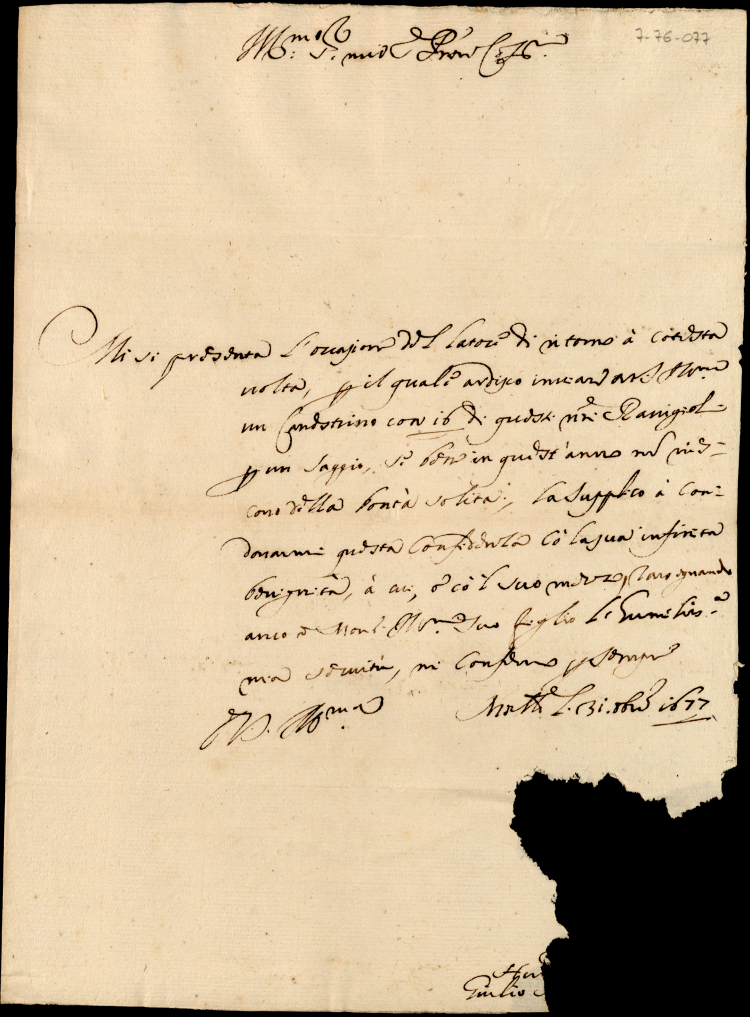 7-76-077
Ill.mo S.r mio e Pron Col.mo
Mi si presenta l'occasione del latore di ritorno à cotesta
volta, p il quale ardisco inviare a V.S. Ill.ma
un Canestrino con 16 di questi n.ri Raviggiol=
p un saggio, se bene in quest'anno nō ries=
cono della bontà solita; la supplico à con=
donarmi questa confidenza cō la sua infinita
benignità, à cui, e cō'l suo
anco à Mons.r Ill.mo suo figlio le humiliss.e
mia servitù, mi confermo p sempre
D V.S. Ill.ma
li 31. Xbre 1677
Giulio